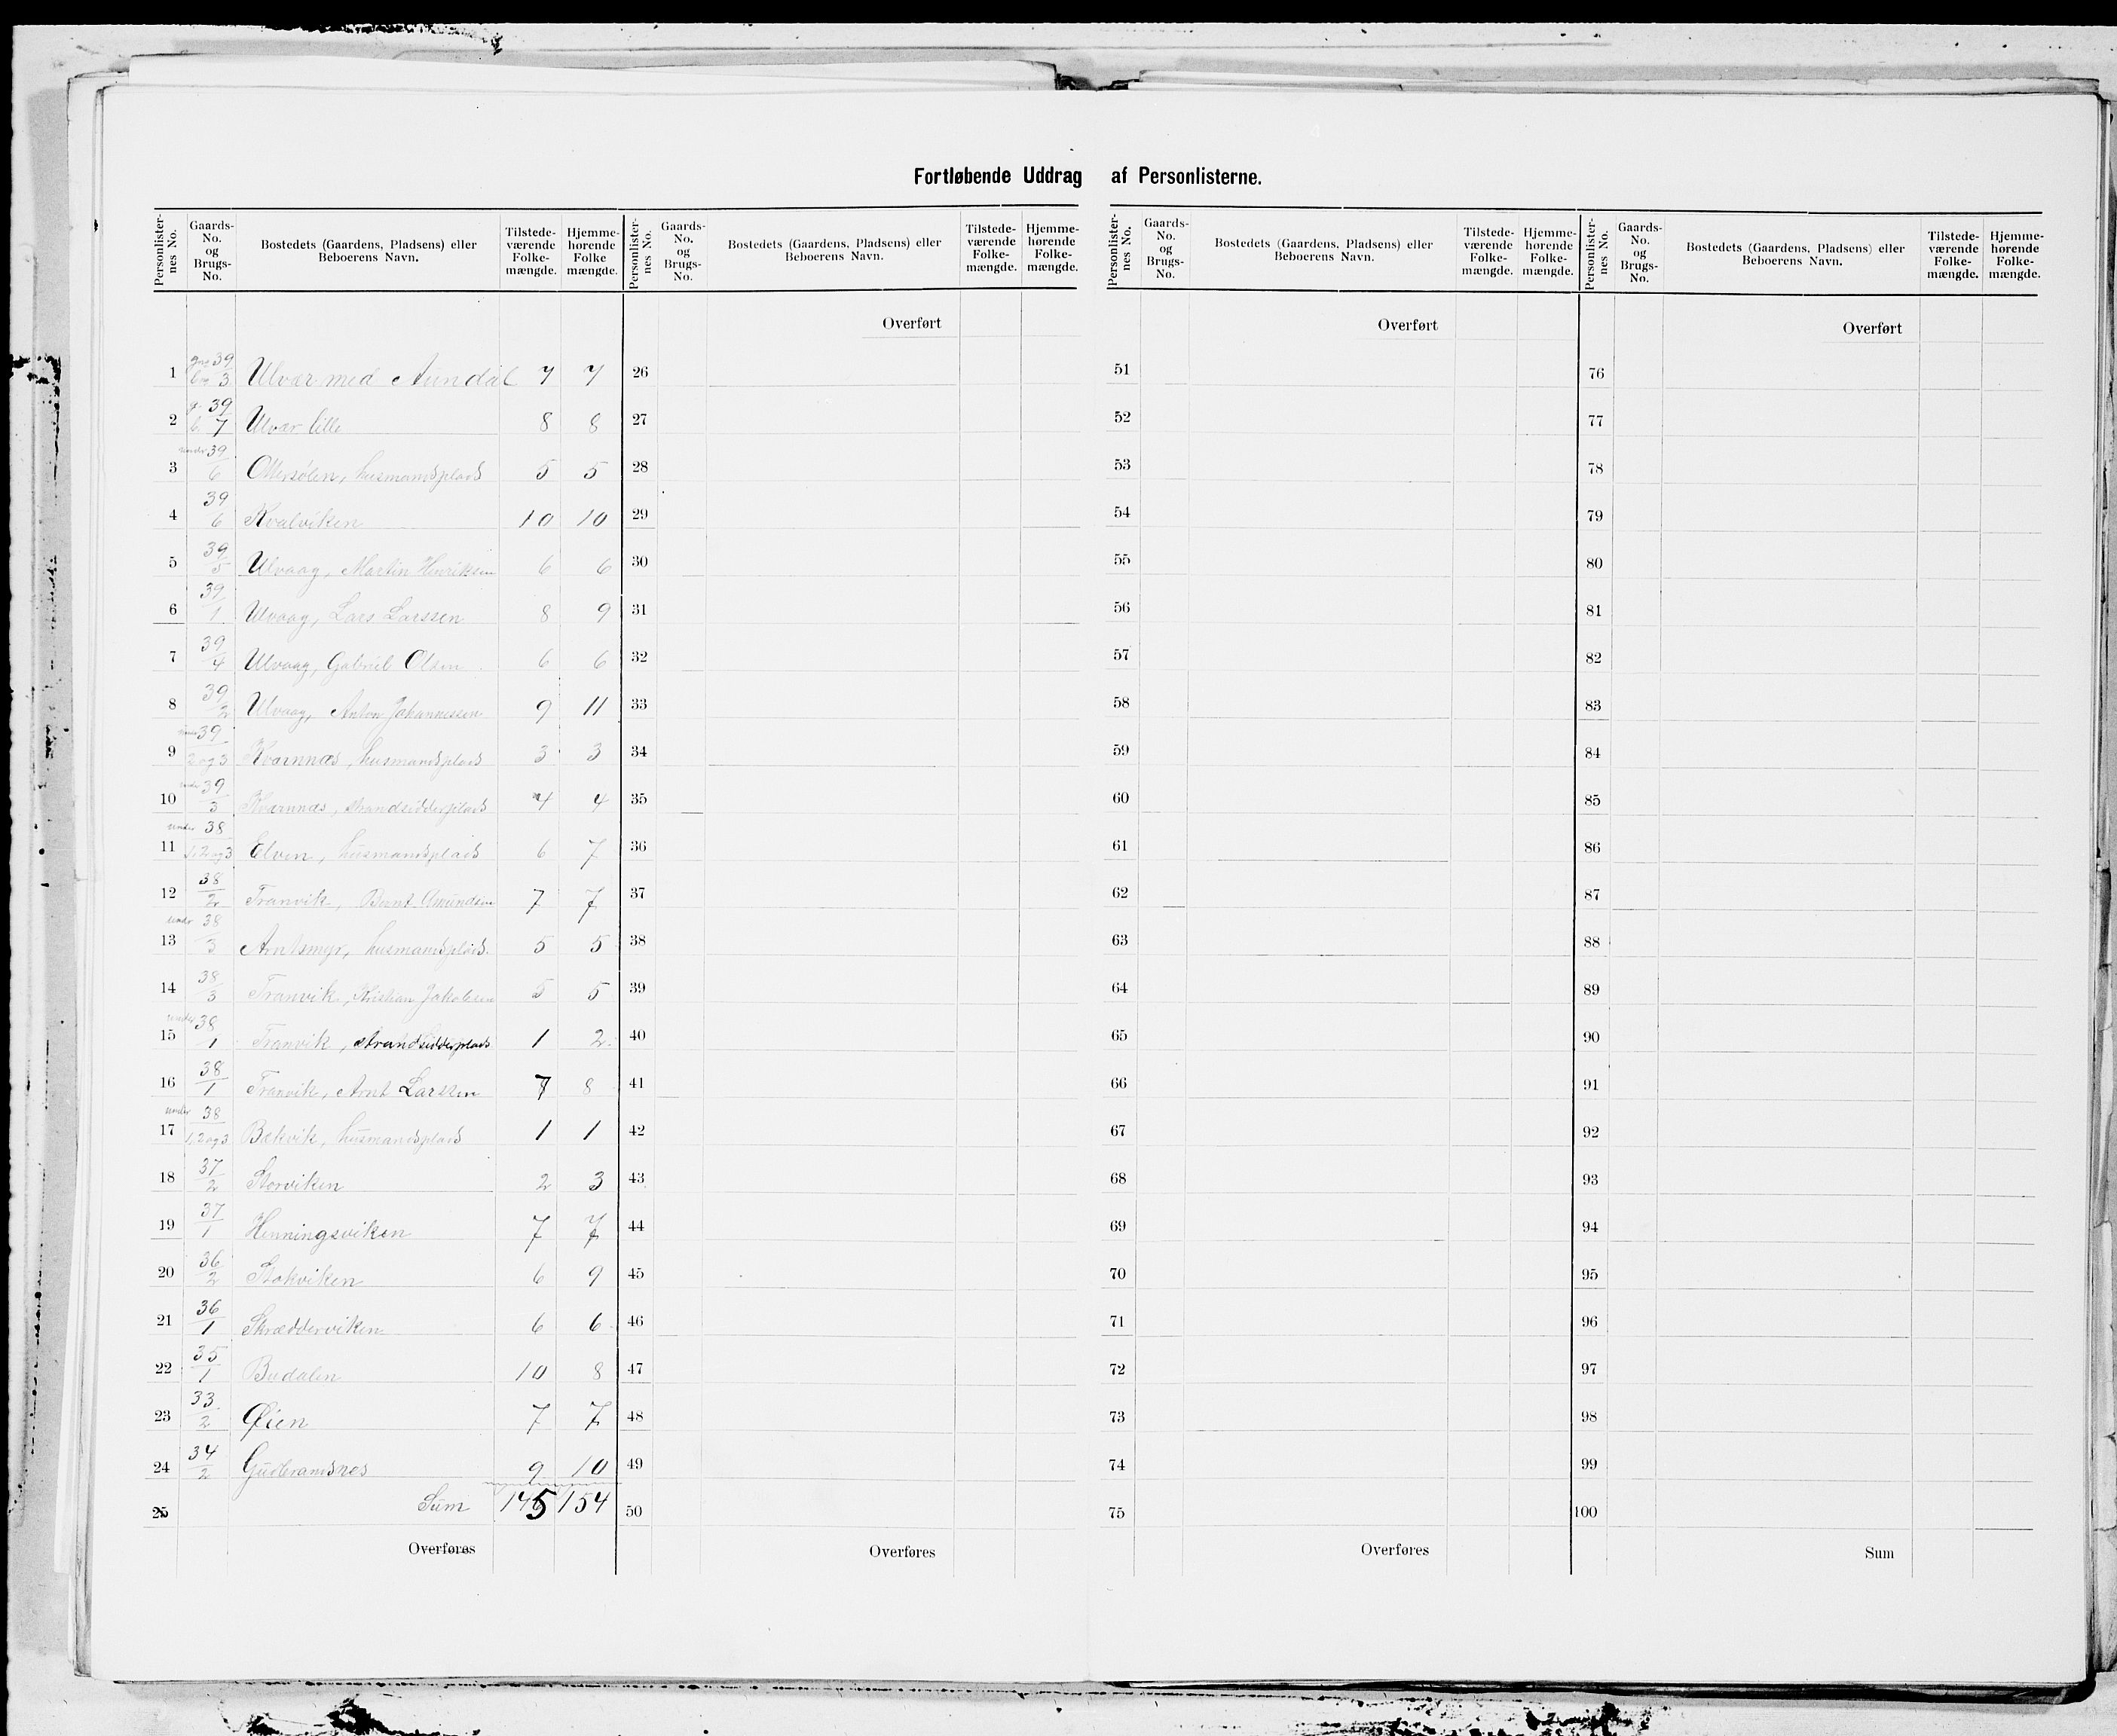 Fortløbende Uddrag af Personlisterne.
Personlister-nes No. Gaards-No. og Brugs-No. Bostedets (Gaardens, Pladsens) eller Beboerens Navn. Tilstede-værende Folke-mængde. Hjemme-hørende Folke mængde.
Personlister-nes No. Gaards-No. og Brugs-No. Bostedets (Gaardens, Pladsens) eller Beboerens Navn. Tilstede-værende Folke-mængde. Hjemme-hørende Folke-mængde.
Personlister-nes No. Gaards-No. og Brugs-No. Bostedets (Gaardens, Pladsens) eller Beboerens Navn. Tilstede-værende Folke-mængde. Hjemme-hørende Folke-mængde.
Personlister-nes No. Gaards-No. og Brugs-No. Bostedets (Gaardens, Pladsens) eller Beboerens Navn. Tilstede-værende Folke-mængde. Hjemme-hørende Folke-mængde.
Overført Overført Overført
1 39/3 Ulvær med Aundal 7 7 26 51 76
2 39/7 Ulvær lille 8 8 27 52 77
3 under 39/6 husmandsplads 5 5 28 53 78
4 39/6 Kvalviken 10 10 29 54 79
5 39/5 Ulvaag, Martin Henriksen 6 6 30 55 80
6 39/1 Ulvaag, Lars Larssen 8 9 31 56 81
7 39/4 Ulvaag, Gabriel Olsen 6 6 32 57 82
8 39/2 Ulvaag, Anton Johannessen 9 11 33 58 83
9 under 39/2 og 3 Kvarnnæs, husmandsplads 3 3 34 59 84
10 under 39/3 Kvarnnæs, strandsidderplads 4 4 35 60 85
11 under 38/1,2 og 3 Elven, husmandsplads 6 7 36 61 86
12 38/2 Tranvik, Bernt Amundsen 7 7 37 62 87
13 under 38/3 Arntsmyr, husmandsplads. 5 5 38 63 88
14 38/3 Tranvik, Kristian Jakobsen 5 5 39 64 89
15 under 38/1 Tranvik, strandsidderplads 1 2 40 65 90
16 38/1 Tranvik, Arnt Larssen 7 8 41 66 91
17 under 38/1,2 og 3 Bækvik, husmandsplads 1 1 42 67 92
18 37/2 Storviken 2 3 43 68 93
19 37/1 Henningsviken 7 7 44 69 94
20 36/2 Stokviken 6 9 45 70 95
21 36/1 Skrædderviken 6 6 46 71 96
22 35/1 Budalen 10 8 47 72 97
23 33/2 Øien 7 7 48 73 98
24 34/2 9 10 49 74 99
25 Sum 145 154 50 75 100
Overføres Overføres Overføres Sum